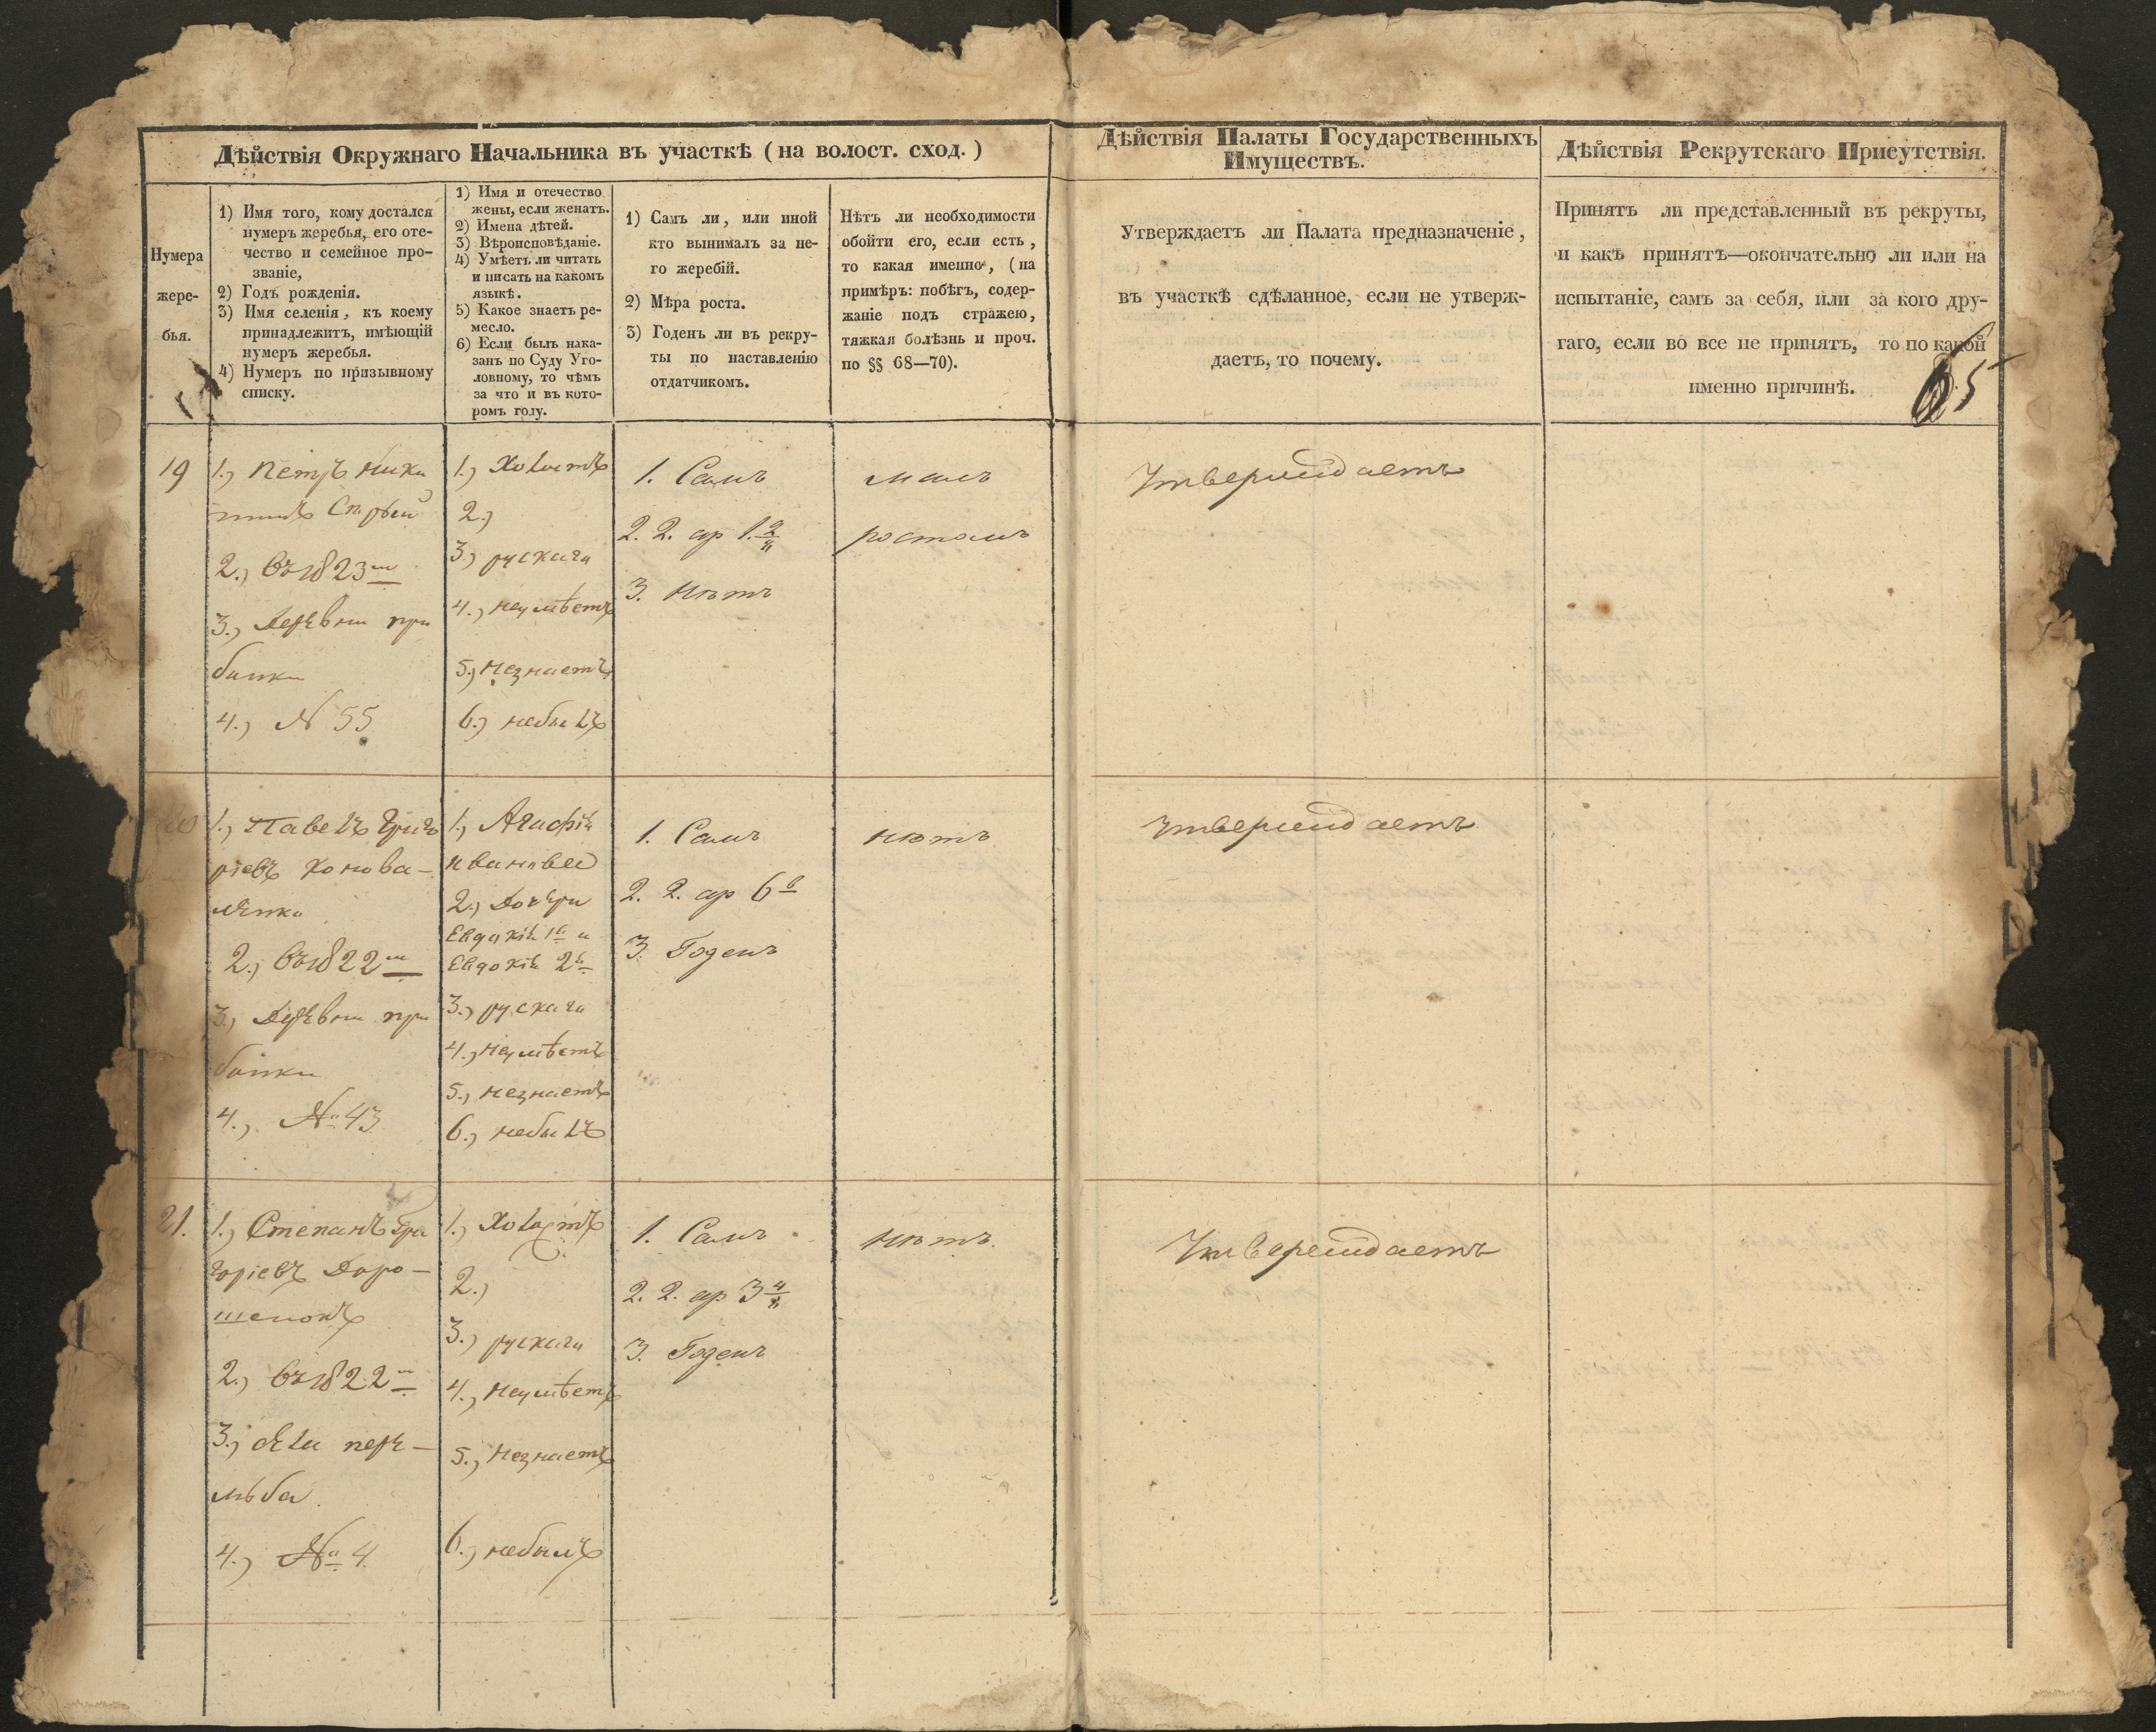 Дѣйствія Окружнаго Начальника въ участкѣ (на волост. сход.)
Нумера
жере-
бья.
1) Имя того, кому достался
нумеръ жеребья, его оте-
чество и семейное про-
званіе,
2) Годъ рожденія.
3) Имя селенія, къ коему
принадлежитъ, имѣющій
нумеръ жеребья.
4) Нумеръ по призывному
списку.
1) Имя и отечество
жены, если женатъ.
2) Имена дѣтей.
3) Вѣроисповѣданіе.
4) Умѣетъ ли читать
и писать на какомъ
языкѣ.
5) Какое знаетъ ре-
месло.
6) Если былъ нака-
занъ по Суду Уго-
ловному, то чѣмъ
за что и въ кото-
ромъ году.
1) Самъ ли, или иной
кто вынималъ за не-
го жеребій.
2) Мѣра роста.
3) Годенъ ли въ рекру-
ты по наставленію
отдатчикомъ.
Нѣтъ ли необходимости
обойти его, если есть,
то какая именно, (на
примѣръ: побѣгъ, содер-
жаніе подъ стражею,
тяжкая болѣзнь и проч.
по §§ 68—70).
Дѣйствія Палаты Государственныхъ
Имуществъ.
Утверждаетъ ли Палата предназначеніе,
въ участкѣ сдѣланное, если не утверж-
даетъ, то почему.
Дѣйствія Рекрутскаго Присутствія.
Принятъ ли представленный въ рекруты,
и какъ принятъ—окончательно ли или на
испытаніе, самъ за себя, или за кого дру-
гаго, если во все не принятъ, то по какой
именно причинѣ.
5
19
1., Петръ Ники
2., въ 1823 м
3., Деревни при
балки
4., N 55
1., Холостъ
2.,
3., рускага
4., неумѣетъ
5., незнаетъ
6., небылъ
1. Самъ
2. 2. ар 1.
3. Нѣтъ
малъ
ростомъ
Утверждаетъ
1., Павелъ Григо
ріевъ Конова-
ленко
2., въ 1822 м
3., Деревни при
балки
4., № 43
1., Агафія
Ивановва
2., Дочери
Евдокія 1я и
Евдокія 2я
3., рускага
4., неумѣетъ
5., незнаетъ
6., небылъ
1. Самъ
2. 2. ар 6 в
3. Годенъ
нѣтъ
Утверждаетъ
21.
1., Степанъ Гри
горіевъ Доро-
шенокъ
2., въ 1822 м
3., села пере-
4., № 4.
1., Холостъ
2.,
3., рускага
4., неумѣетъ
5., незнаетъ
6., небылъ
1. Самъ
2. 2. ар 3 4/8
3. Годенъ
нѣтъ.
Утверждаетъ